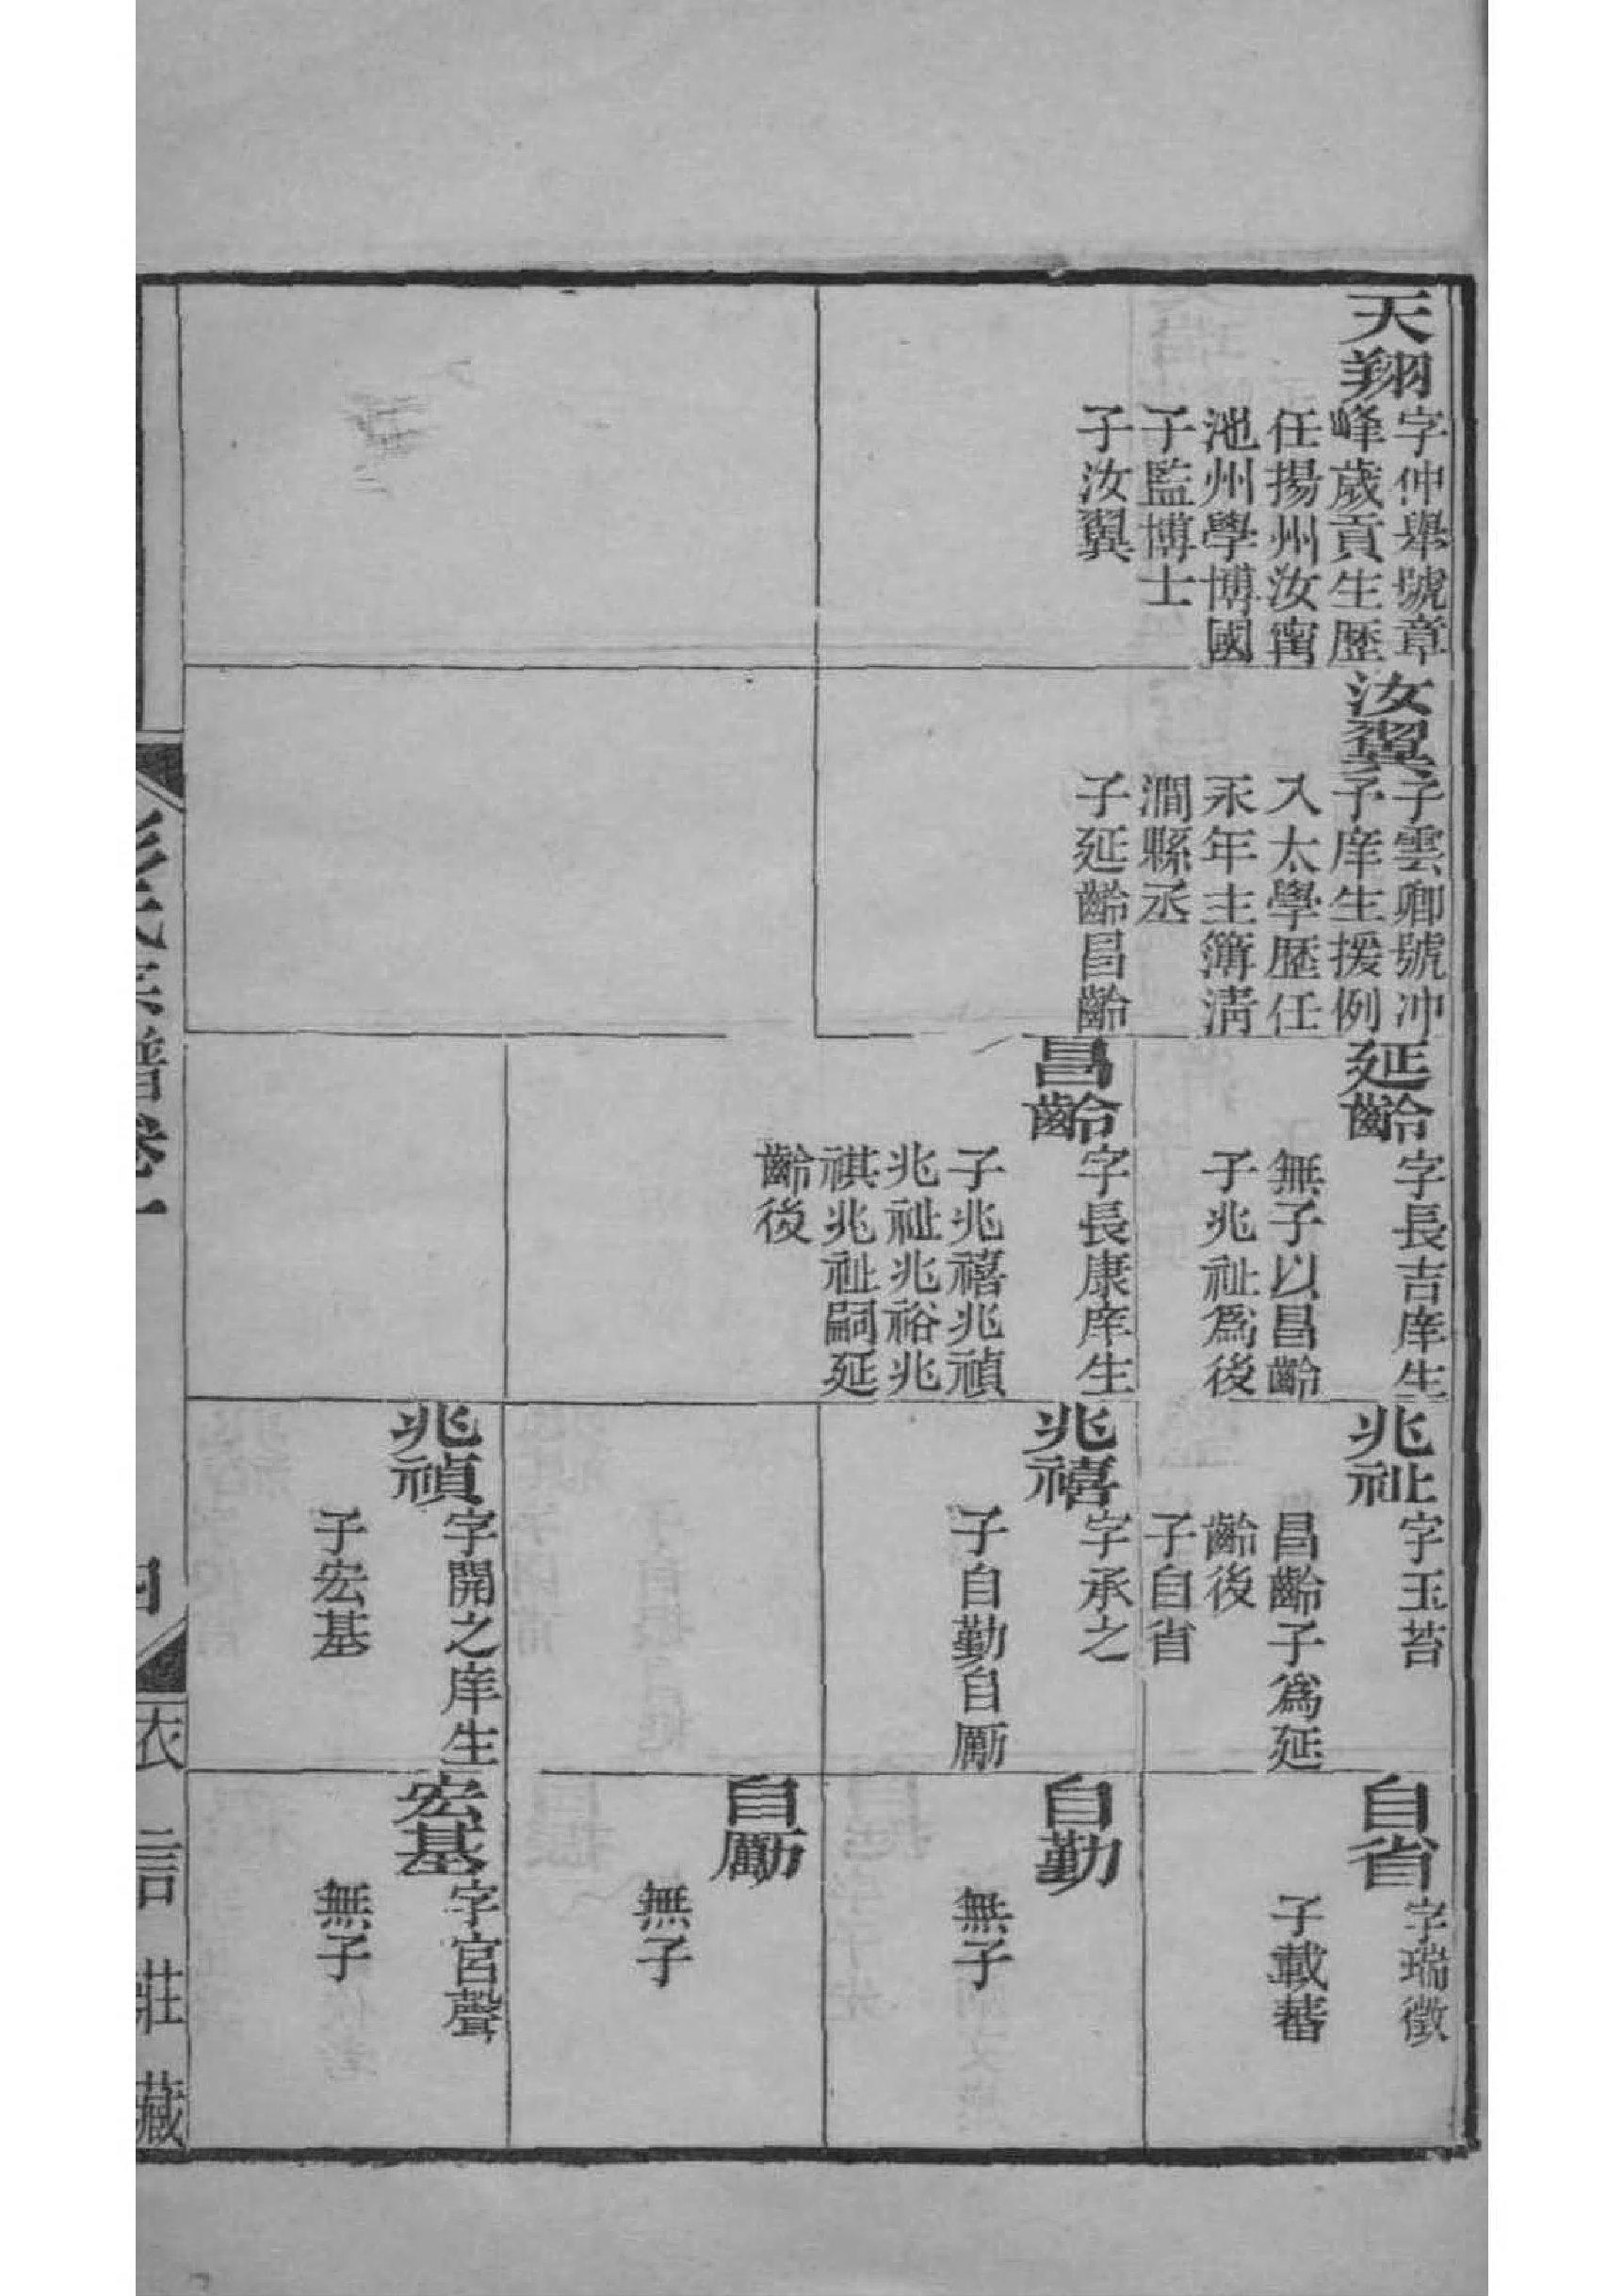 天翔
字仲舉號章
峰歲貢生歷
任揚州汝甯
池州學博國
子監博士
子汝翼
汝翼
子雲卿號冲
予庠生援例
入太學歷任
永年主簿淸
澗縣丞
子延齡昌齡
延齡
字長吉庠生
無子以昌齡
子兆祉爲後
昌齡
字長康庠生
子兆禧兆禎
兆祉兆裕兆
祺兆祉嗣延
齡後
兆祉
字玉苔
昌齡子爲延
齡後
子自省
兆禧
字承之
子自勤自勵
兆禎
字開之庠生
子宏基
自省
字瑞徵
子載蕃
自勤
無子
自勵
無子
宏基
字宮聲
無子
彭氏宗譜卷一
四
衣言莊藏